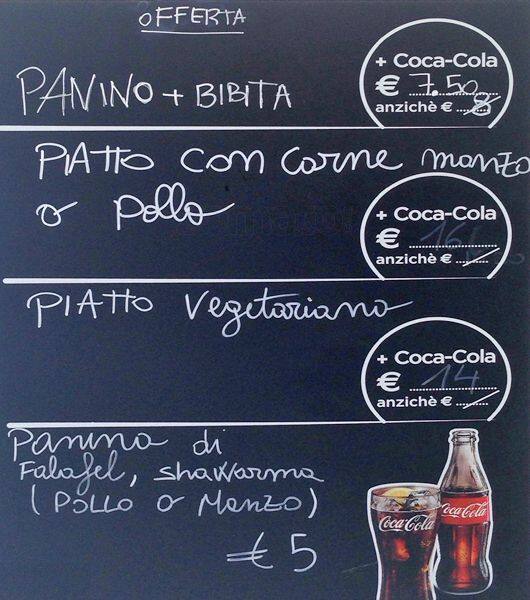 OFFERTA
PANINO + BIBITA
+ Coca-Cola
€ 7.50
anzichè € 8
PIATTO con carne manzo
o pollo
+ Coca-Cola
€ 16
anzichè €
PIATTO vegetariano
+ Coca-Cola
€ 14
anzichè €
Panino di
Falafel, shawarma
(POLLO O MANZO)
€ 5
Coca-Cola
Coca-Cola